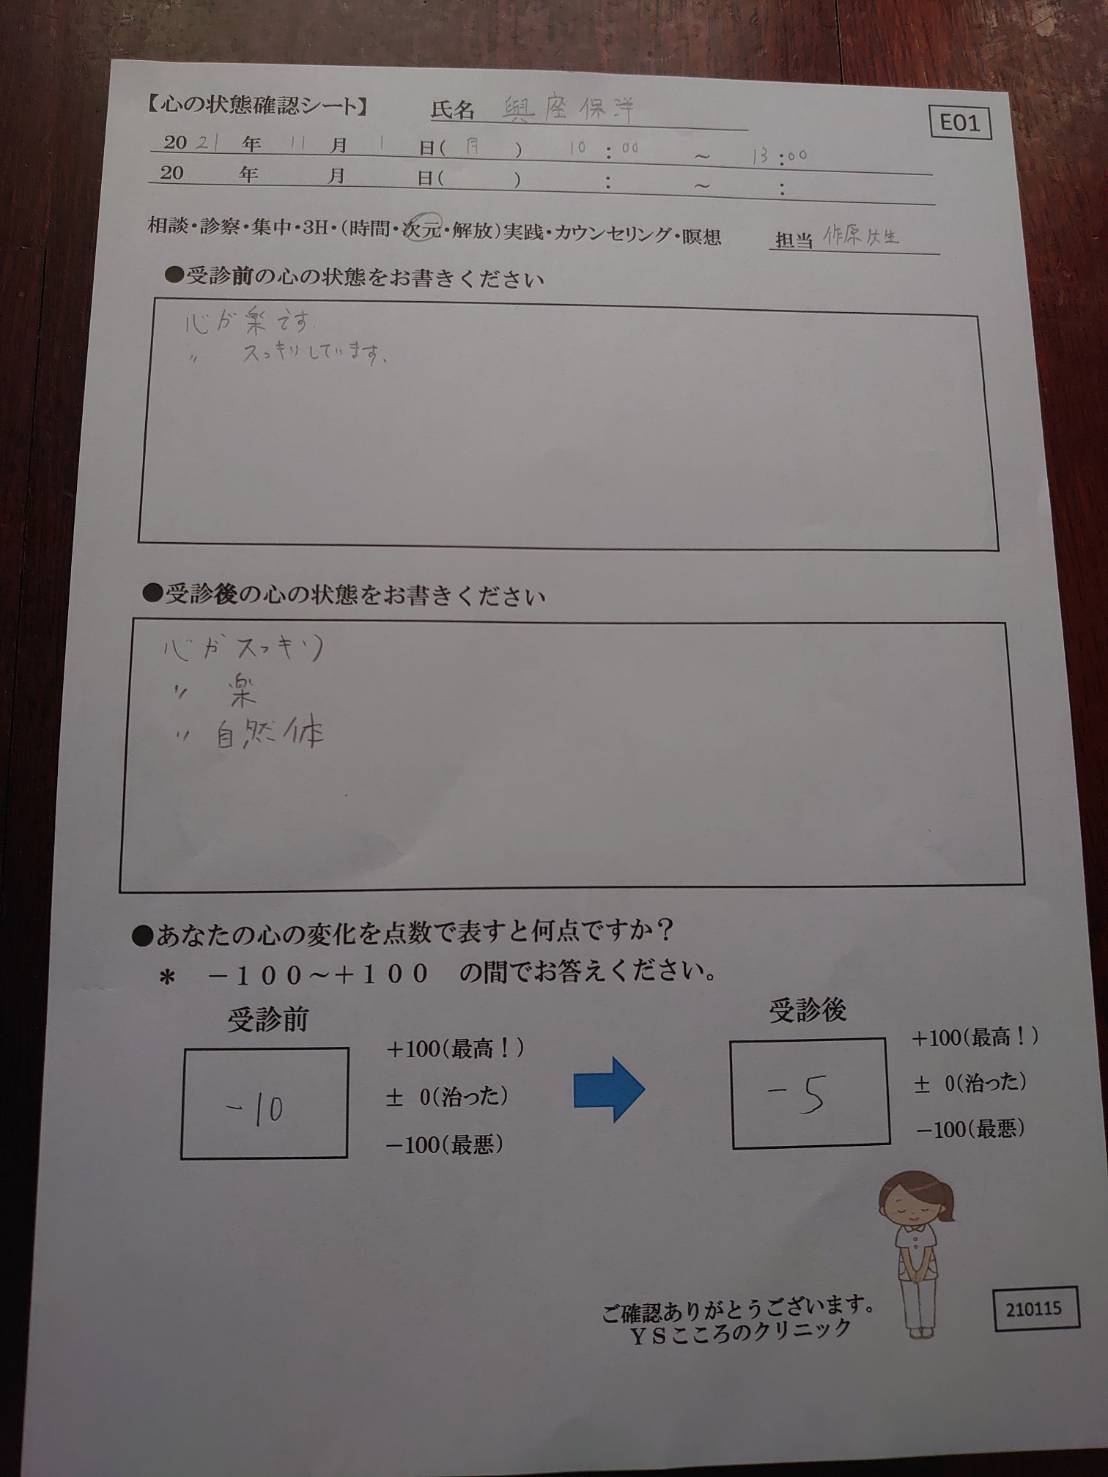 【心の状態確認シート】 氏名 與座保洋
E01
2021年 11月 1日(月) 10:00 ～ 13:00
20 年 月 日( ) : ～ :
相談・診察・集中・3H・(時間・次元・解放)実践・カウンセリング・瞑想 担当 作原
●受診前の心の状態をお書きください
心が楽です
〃 スッキリしています。
●受診後の心の状態をお書きください
心がスッキリ
〃 楽
〃 自然体
●あなたの心の変化を点数で表すと何点ですか？
＊ －１００～＋１００ の間でお答えください。
受診前
-10
+100(最高！)
± 0(治った)
−100(最悪)
受診後
-5
+100(最高！)
± 0(治った)
−100(最悪)
ご確認ありがとうございます。
ＹＳこころのクリニック
210115